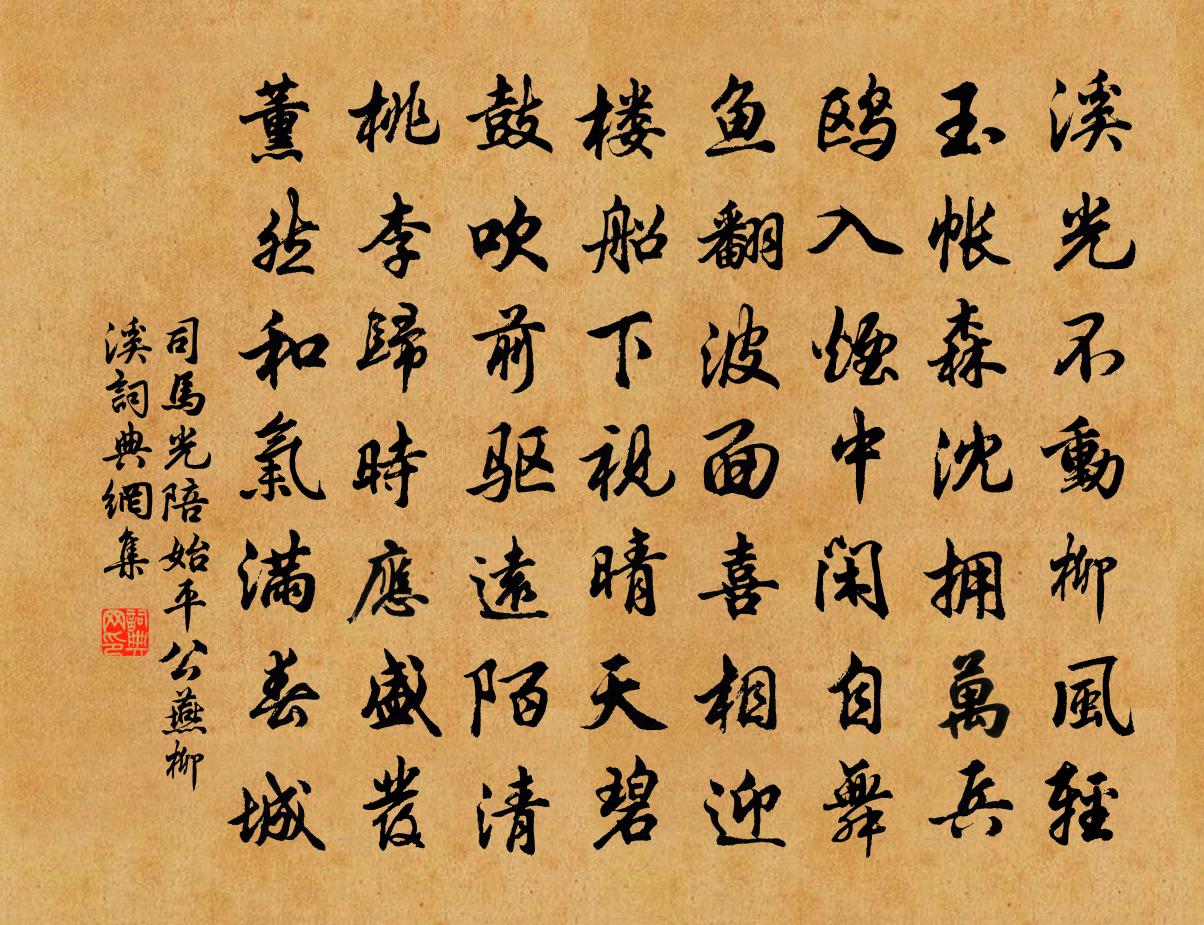 溪光不動柳風輕
玉帐森沈拥萬兵
鸥入煙中闲自舞
鱼翻波面喜相迎
楼船下視晴天碧
鼓吹前驱遠陌清
桃李歸時應盛發
薰然和氣满春城
司馬光陪始平公燕柳
溪詞典網集
詞典
网印